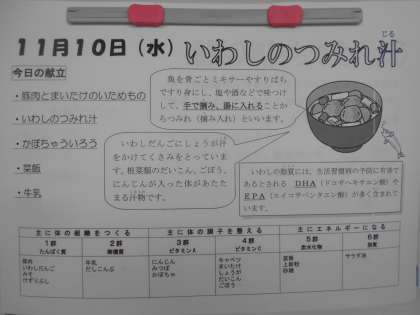 11月10日（水）いわしのつみれ汁
じる
今日の献立
・豚肉とまいたけのいためもの
・いわしのつみれ汁
・かぼちゃういろう
・菜飯
・牛乳
魚を骨ごとミキサーやすりばち
ですり身にし、塩や酒などで味つけ
して、手で摘み、湯に入れることか
らつみれ（摘み入れ）といいます。
いわしだんごにしょうが汁
をかけてくさみをとってい
ます。根菜類のだいこん、ごぼう、
にんじんが入った体があたた
まる汁物です。
いわしの脂質には、生活習慣病の予防に有効で
あるとされる DHA（ドコサヘキサエン酸）や
EPA（エイコサペンタエン酸）が多く含まれて
います。
主に体の組織をつくる 主に体の調子を整える 主にエネルギーになる
1群 2群 3群 4群 5群 6群
たんぱく質 無機質 ビタミンA ビタミンC 炭水化物 脂質
豚肉 牛乳 にんじん キャベツ 上新粉 サラダ油
いわしだんご だしこんぶ みつば まいたけ 砂糖
みそ かぼちゃ しょうが
けずりぶし だいこん
ごぼう